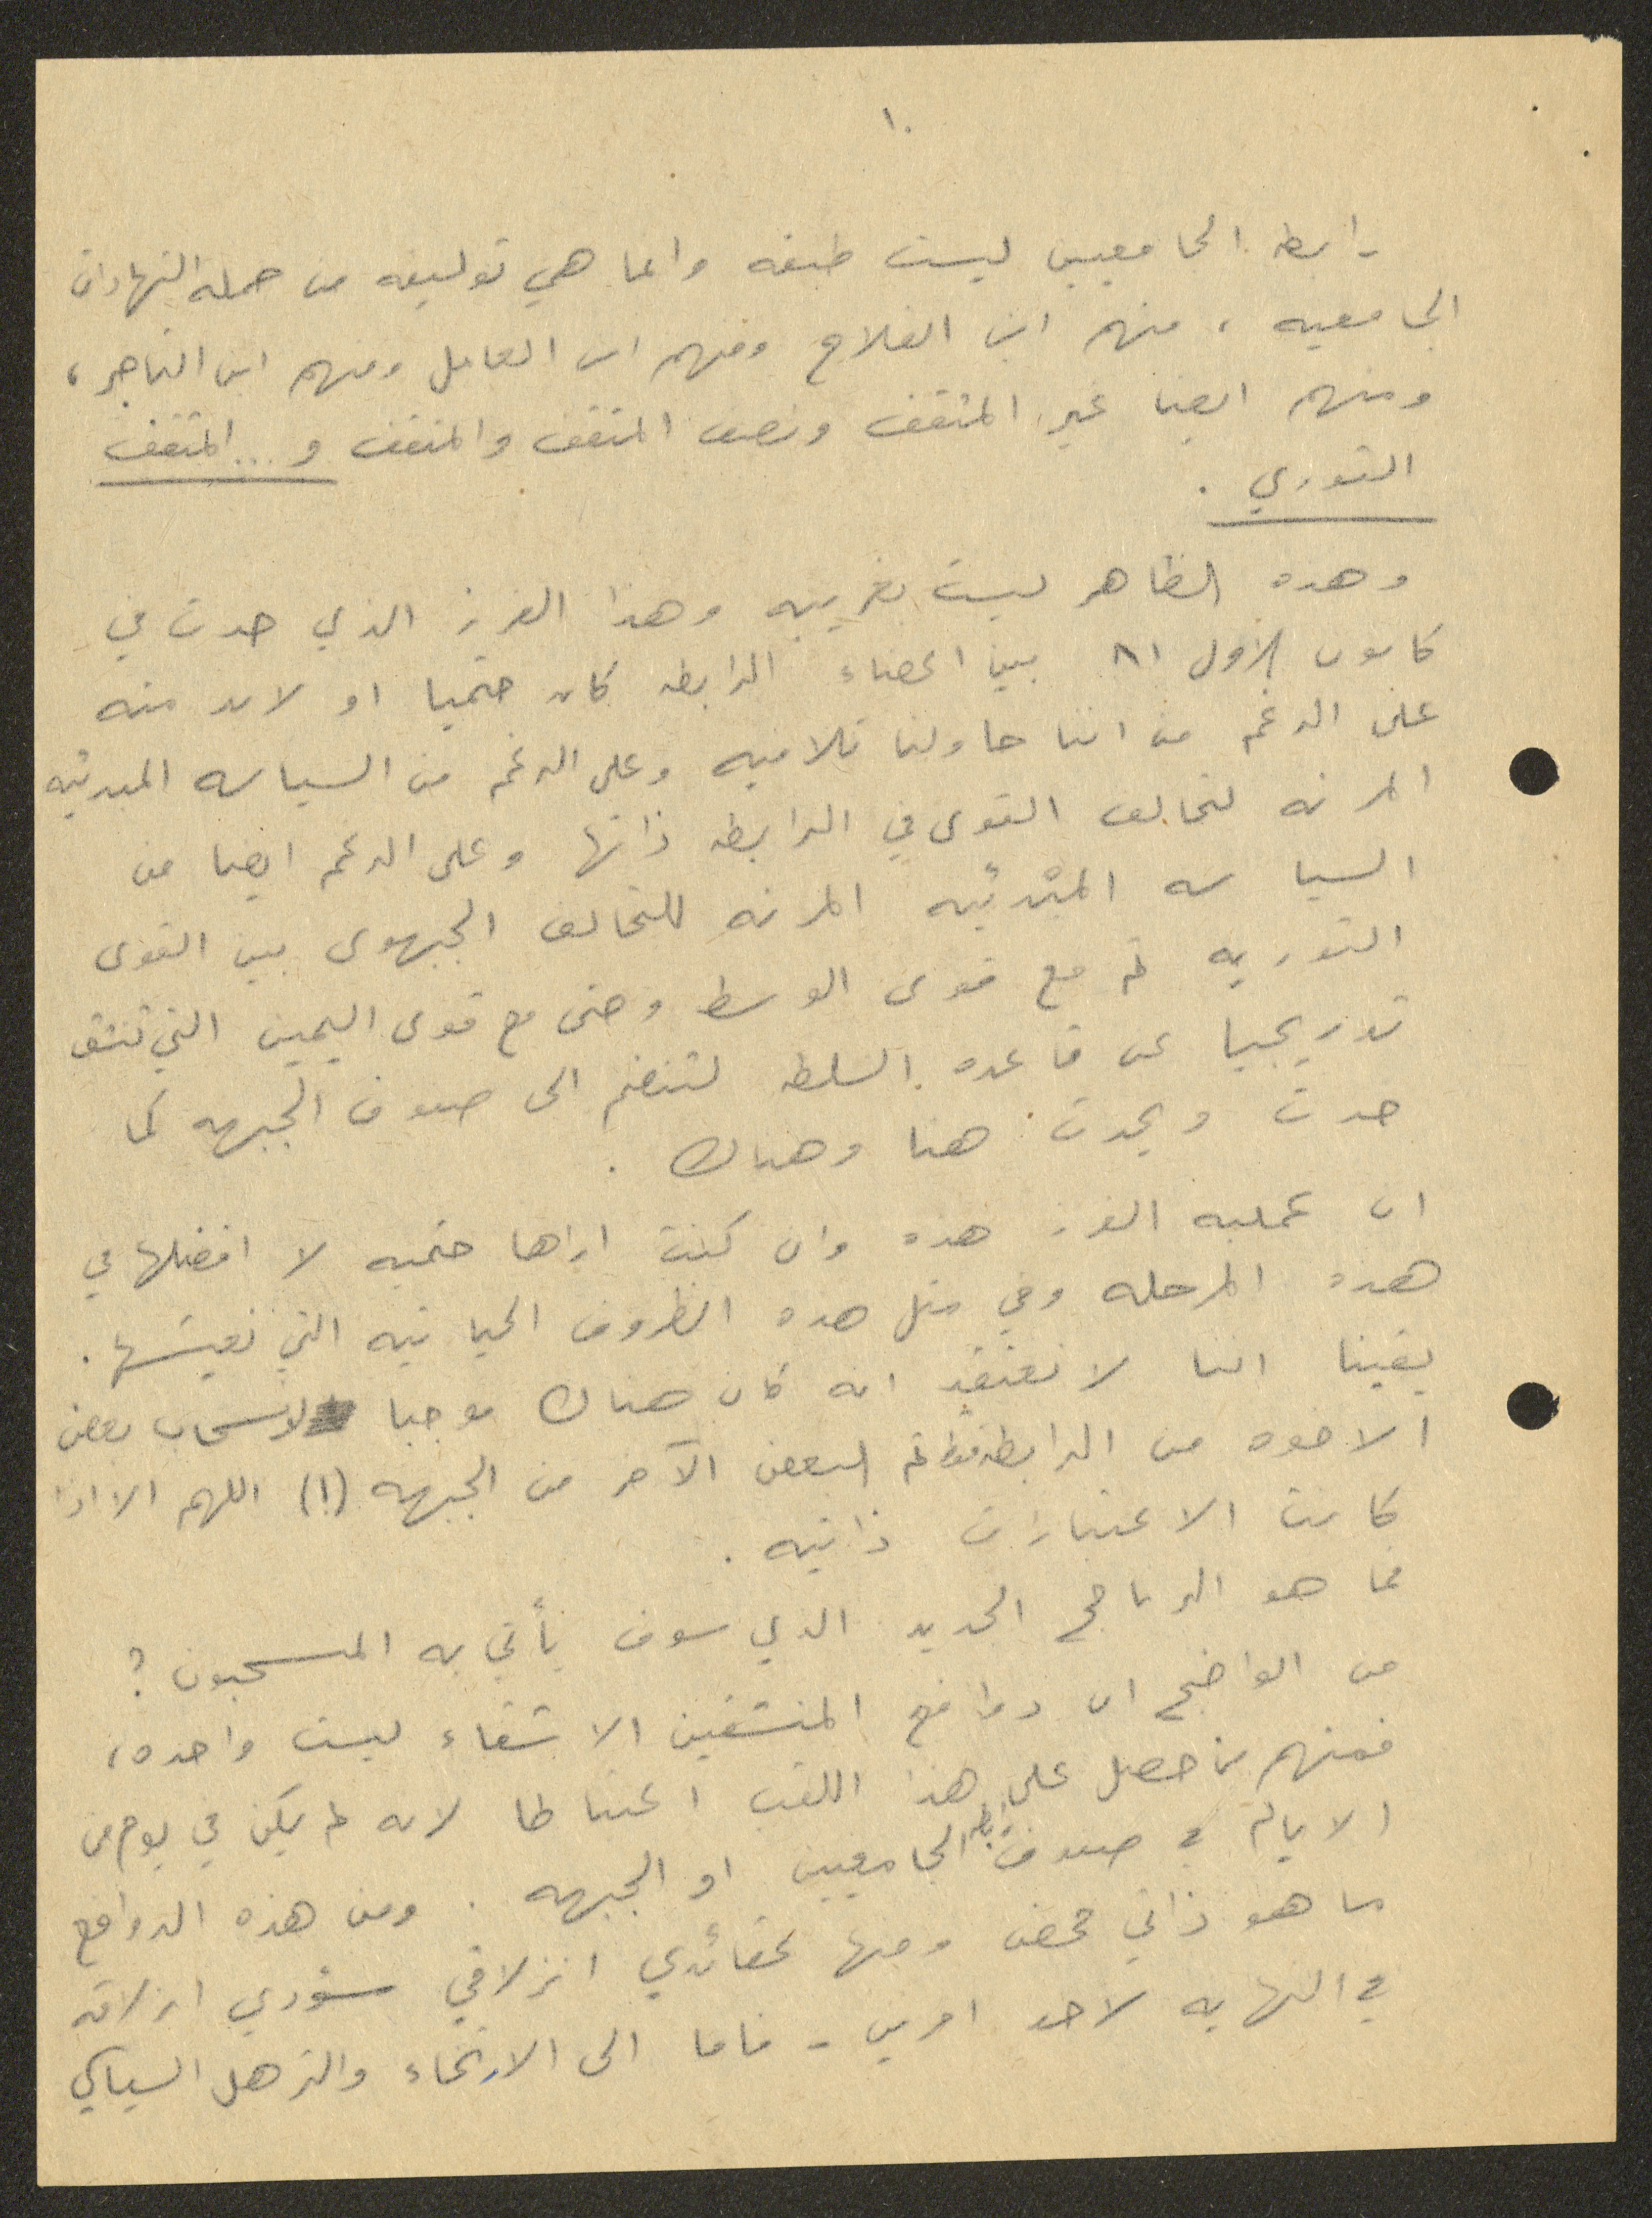 ١٠
رابطه الجامعيين ليست طبقه وانما هي توليفه من حملة الشهادات
الجامعيه ، منهم ابن الفلاح ومنهم ابن العامل ومنهم ابن التاجر ،
ومنهم ايضا غير المثقف ونصف المثقف والمثقف و... المثقف
الثوري .
وهذه الظاهر ليست بغريبه وهذا الفرز الذي حدث في
كانون الاول ٨١ بين اعضاء الرابطه كان حتميا او لابد منه
على الرغم من اننا حاولنا تلافيه وعلى الرغم من السياسه المبدئيه
المرنه لتحالف القوى في الرابطه ذاتها وعلى الرغم ايضا من
السياسه المبدئيه المرنه للتحالف الجبهوى بين القوى
الثوريه ثم مع قوى الوسط وحتى مع قوى اليمين التي تنشق
تدريجيا عن قاعده السلطه لتنضم الى صفوف الجبهه كما
حدث ويحدث هنا وهناك .
ان عمليه الفرز هذه وان كنت اراها حتميه لا افضلها في
هذه المرحله وفي مثل هذه الظروف الحياتيه التي نعيشها .
يقينا اننا لا نعتقد انه كان هناك موجبا لانسحاب بعض
الاخوه من الرابطه ثم البعض الآخر من الجبهه (!) اللهم الا اذا
كانت الاعتبارات ذاتيه .
فما هو البرنامج الجديد الذي سوف يأتي به المنسحبون ؟
من الواضح ان دوافع المنشقين الاشقاء ليست واحده ،
فمنهم من حصل على هذا اللقب اعتباطا لانه لم يكن في يوم من
الايام في صفوف رابطه الجامعيين او الجبهه . ومن هذه الدوافع
ما هو ذاتي محض ومنها عقائدي انزلاقي سيؤدي انزلاقه
في النهايه لاحد امرين - فاما الى الارتخاء والترهل السياسي